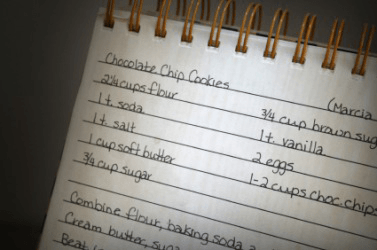 Chocolate Chip Cookies
(Marcia
2 1/4 cups flour
3/4 cup brown sug
1 t. soda
1 t. vanilla
1 t. salt
2 eggs
1 cup soft butter
1-2 cups choc. chips
3/4 cup sugar
Combine flour, baking soda
Cream butter, suga
Beat